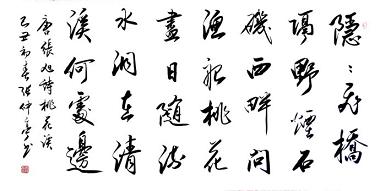 隱〻飛橋
隔野煙石
磯西畔問
漁船桃花
盡日隨流
水洞在清
溪何處邊
唐張旭詩桃花溪
己丑初春張仲亭書